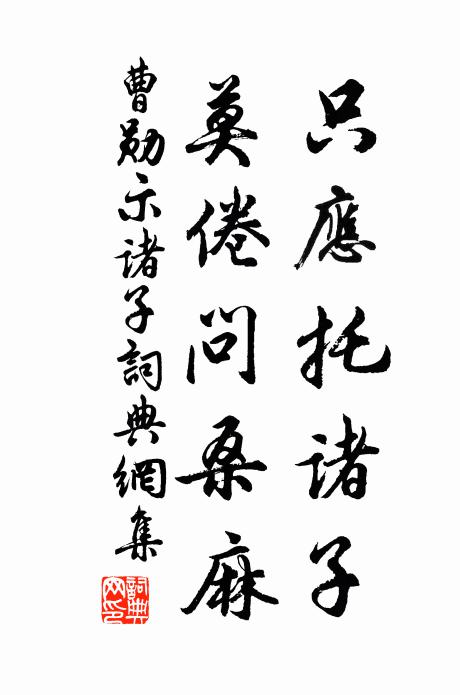 只應托諸子
莫倦問桑麻
曹勛示諸子詞典網集
詞典网印